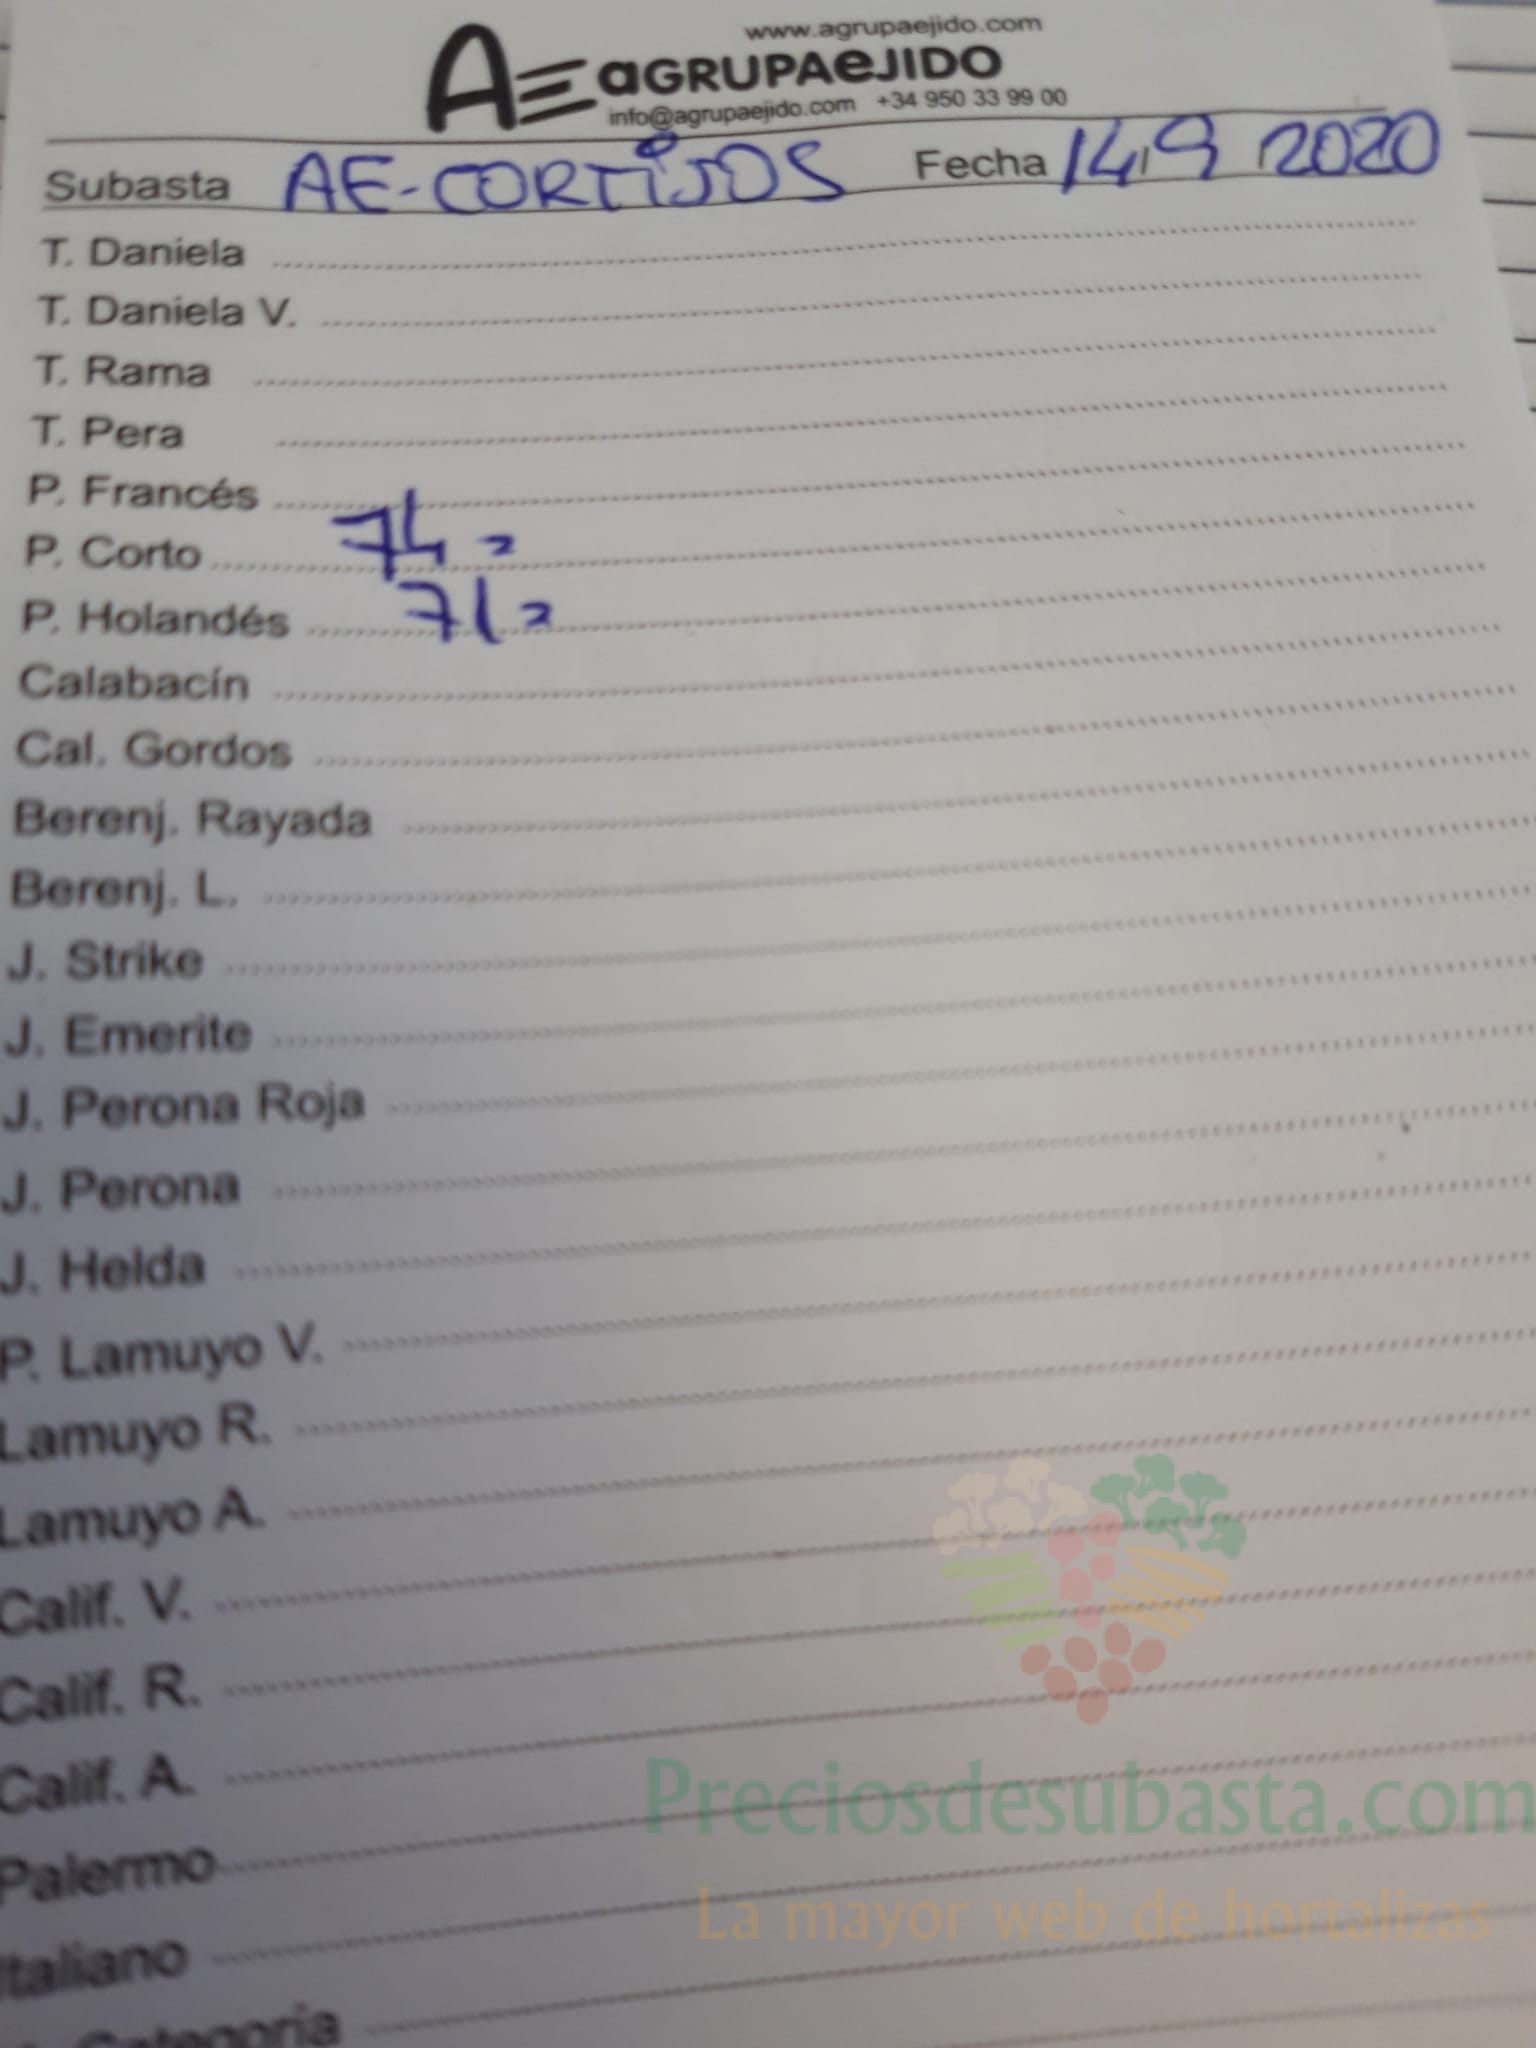 www.agrupaejido.com
AE aGRUPAeJIDO
info@agrupaejido.com +34 950 33 99 00
Subasta AE-CORTIJOS Fecha 14,9 2020
T. Daniela
T. Daniela V.
T. Rama
T. Pera
P. Francés
P. Corto 74
P. Holandés 71
Calabacín
Cal. Gordos
Berenj. Rayada
Berenj. L.
J. Strike
J. Emerite
J. Perona Roja
J. Perona
J. Helda
P. Lamuyo V.
Lamuyo R.
Lamuyo A.
Calif. V.
Calif. R.
Calif. A.
Palermo
Italiano
Categoría
Preciosdesubasta.com
La mayor web de hortalizas